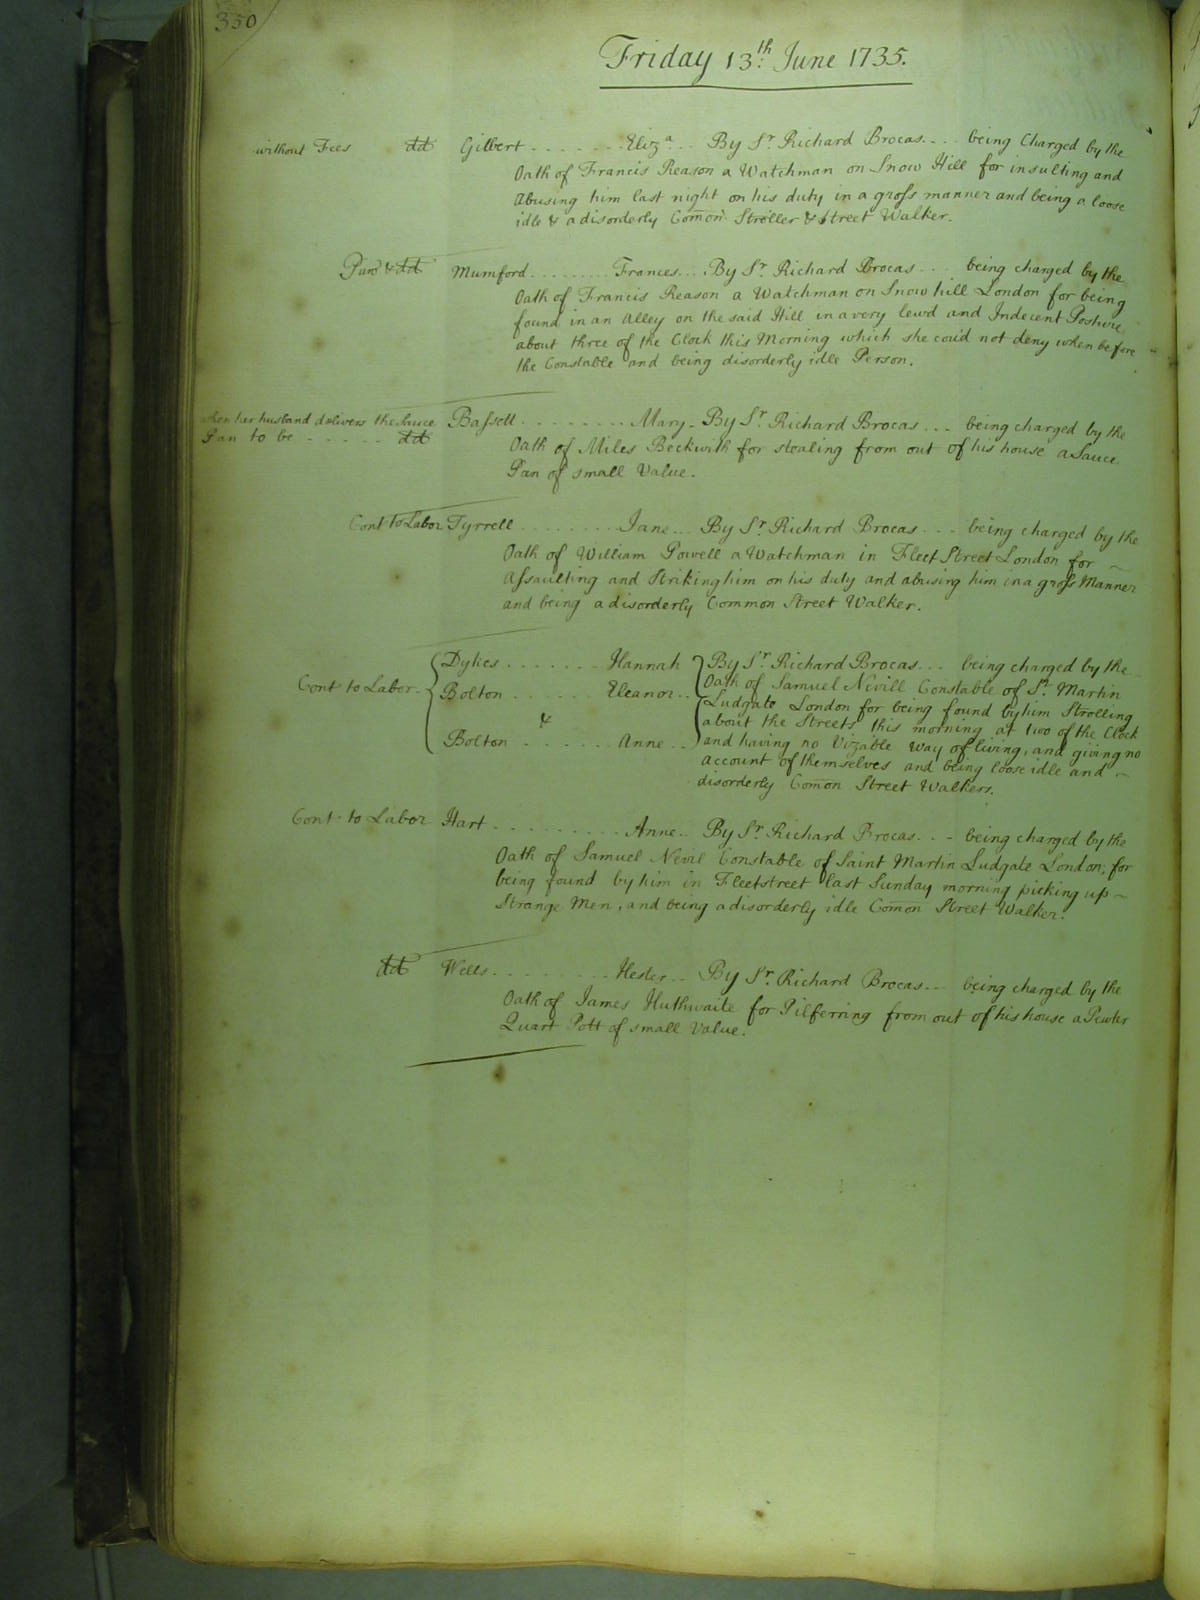 350
Friday 13.th June 1735.
without Fees dd Gilbert ........ Eliza ... By Sr. Richard Brocas .... being Charged by the
Oath of Francis Reason a Watchman on Snow Hill for insulting and
Abusing him last night on his duty in a gross manner and being a loose
idle & a disorderly Comon Stroller & Street Walker.
& dd Mumford ......... Frances ... By Sr. Richard Brocas .... being charged by the
Oath of Francis Reason a Watchman on Snow hill London for being
found in an Alley on the said Hill in a very lewd and Indecent Posture
about three of the Clock this Morning which she could not deny when before
the Constable and being disorderly idle Person.
when her husband delivers the Sauce Bassett ......... Mary . By Sr. Richard Brocas ... being charged by the
Pan to be ..... dd Oath of Miles Beckwith for stealing from out of his house a Sauce
Pan of small Value.
Cont to Labor Tyrrell ......... Jane ... By Sr. Richard Brocas ... being charged by the
Oath of William Powell a Watchman in Fleet Street London for
Assaulting and Striking him on his duty and abusing him in a gross Manner
and being a disorderly Common Street Walker.
Dykes ....... Hannah By Sr. Richard Brocas ... being charged by the
Cont to Labor Bolton ...... Eleanor .. Oath of Samuel Nevill Constable of St. Martin
Ludgate London for being found by him Strolling
& about the Streets this morning at two of the Clock
Bolton ...... Anne .. and having no Vizable way of living, and giving no
account of themselves and being loose idle and
disorderly Comon Street Walkers.
Cont to Labor Hart .......... Anne .. By Sr. Richard Brocas ... being charged by the
Oath of Samuel Nevil Constable of Saint Martin Ludgate London, for
being found by him in Fleetstreet last Sunday morning picking up
Strange Men, and being a disorderly idle Comon Street Walker.
dd Wells ......... Hester .. By Sr. Richard Brocas ... being charged by the
Oath of James Huthwaite for Pilferring from out of his house a Pewter
Quart Pott of small Value.